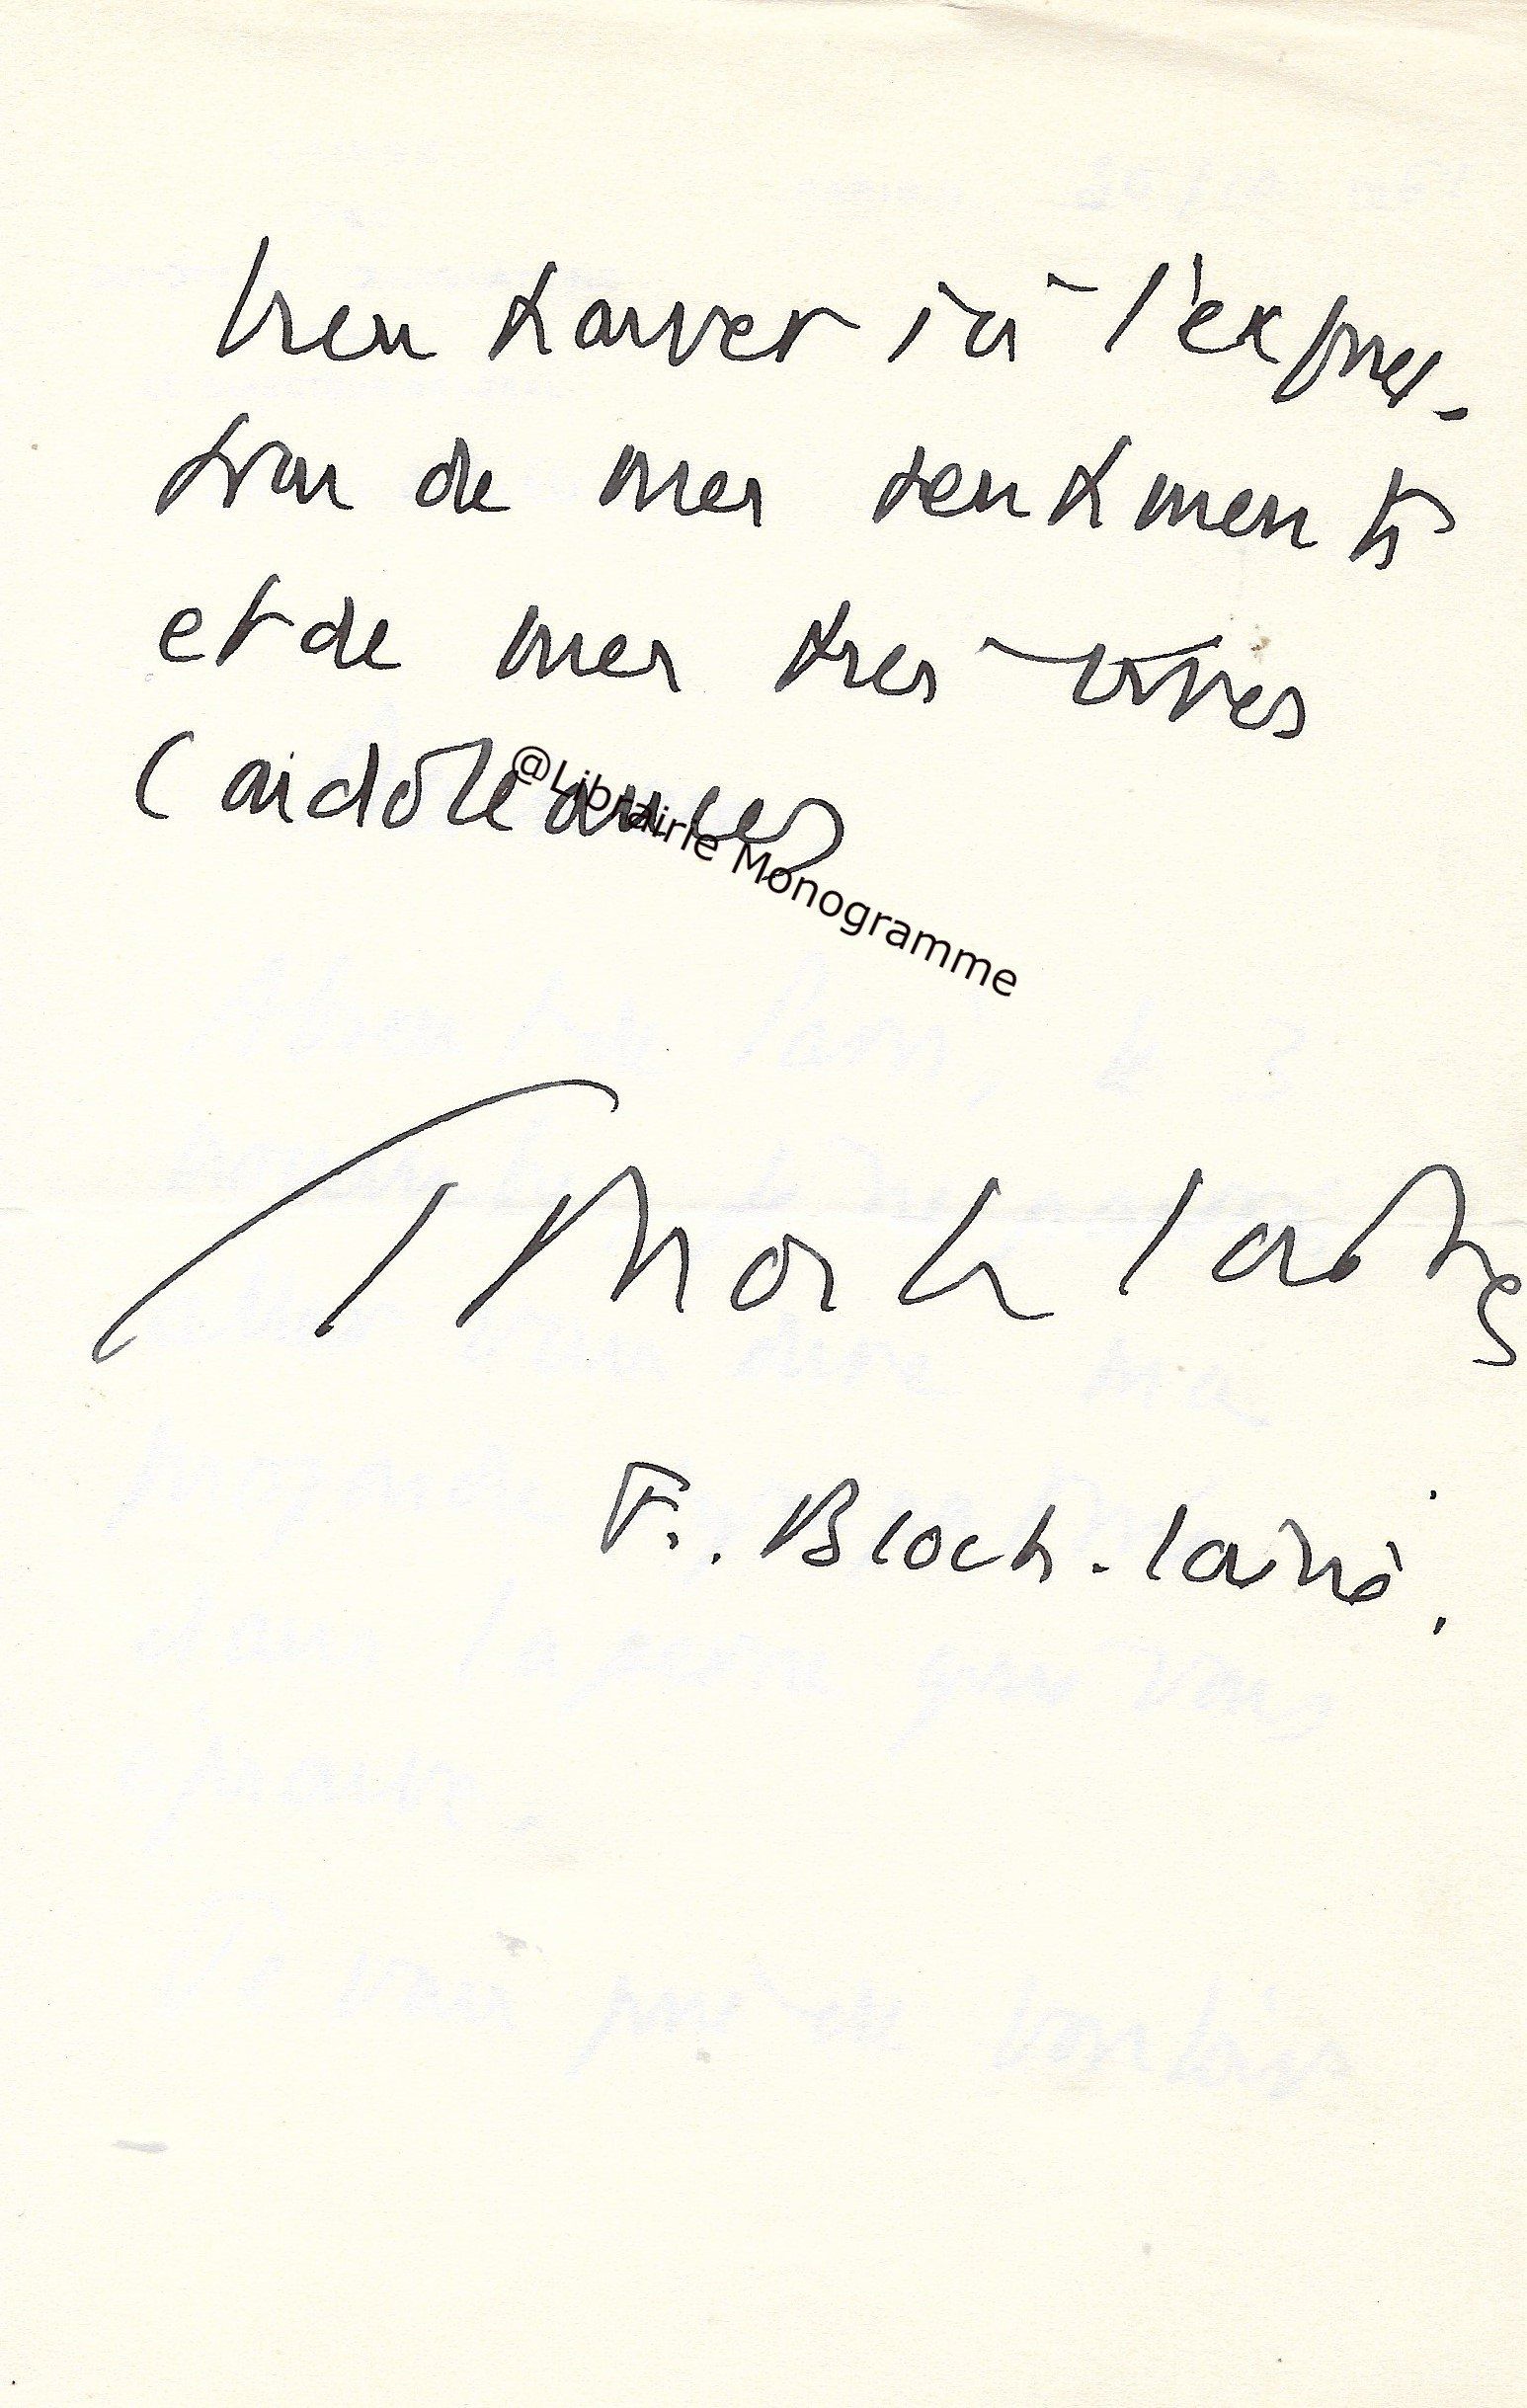 bien trouver ici l'expres-
sion de mes sentiments
et de mes très vives
condoléances
@Librairie Monogramme
F. Bloch-Lainé.